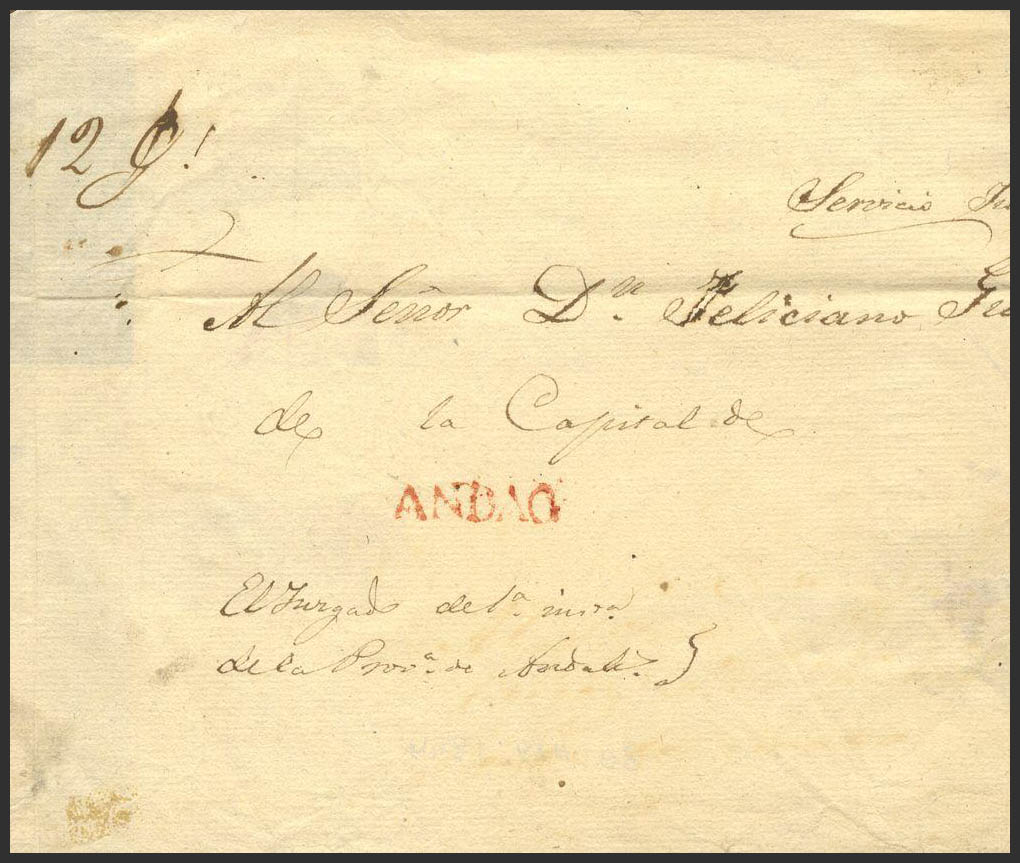 12
Servicio
Al Señor Dn. Feliciano
de la Capital de
ANDAG
El Juzgado de 1a. insta.
de la Prova. de Andah.